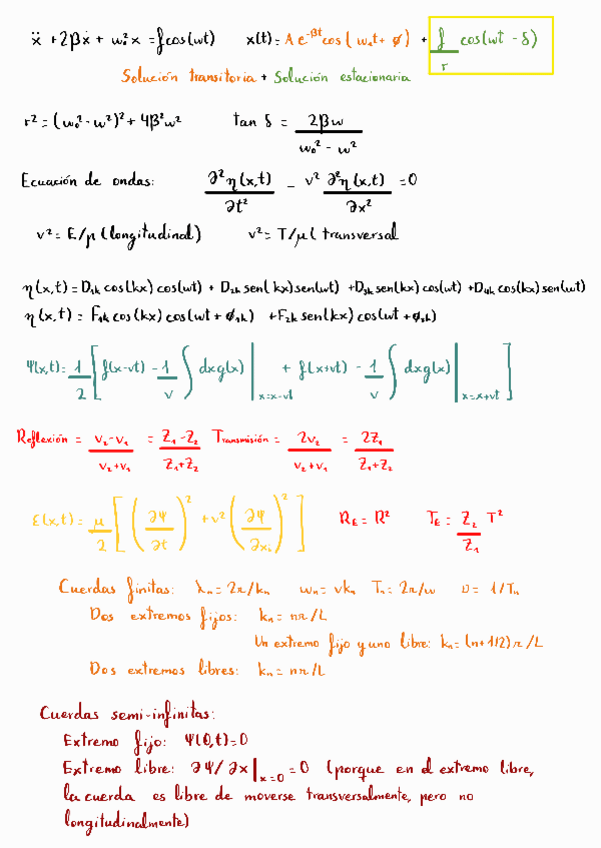 ẍ + 2βẋ + ω₀²x = f cos(ωt)    x(t) = A e^(-βt) cos(ω₀t + φ) + f/r cos(ωt - δ)
Solución transitoria + Solución estacionaria
r² = (ω₀² - ω²)² + 4β²ω²    tan δ = 2βω / (ω₀² - ω²)
Ecuación de ondas: ∂²η(x,t)/∂t² - v² ∂²η(x,t)/∂x² = 0
v² = E/ρ (longitudinal)    v² = T/μ ( transversal
η(x,t) = D₁ₖ cos(kx) cos(ωt) + D₂ₖ sen(kx) sen(ωt) + D₃ₖ sen(kx) cos(ωt) + D₄ₖ cos(kx) sen(ωt)
η(x,t) = F₁ₖ cos(kx) cos(ωt + φ₁ₖ) + F₂ₖ sen(kx) cos(ωt + φ₂ₖ)
Ψ(x,t) = 1/2 [ f(x-vt) - 1/v ∫ dx g(x) |x=x-vt + f(x+vt) - 1/v ∫ dx g(x) |x=x+vt ]
Reflexión = (v₂-v₁)/(v₂+v₁) = (Z₁-Z₂)/(Z₁+Z₂)    Transmisión = 2v₂/(v₂+v₁) = 2Z₁/(Z₁+Z₂)
ε(x,t) = μ/2 [ (∂Ψ/∂t)² + v² (∂Ψ/∂xᵢ)² ]    R_E = R²    T_E = Z₂/Z₁ T²
Cuerdas finitas: λₙ = 2π/kₙ    ωₙ = vkₙ    Tₙ = 2π/ω    ν = 1/Tₙ
Dos extremos fijos: kₙ = nπ/L
Un extremo fijo y uno libre: kₙ = (n+1/2)π/L
Dos extremos libres: kₙ = nπ/L
Cuerdas semi-infinitas:
Extremo fijo: Ψ(0,t) = 0
Extremo libre: ∂Ψ/∂x|x=0 = 0 (porque en el extremo libre,
la cuerda es libre de moverse transversalmente, pero no
longitudinalmente)